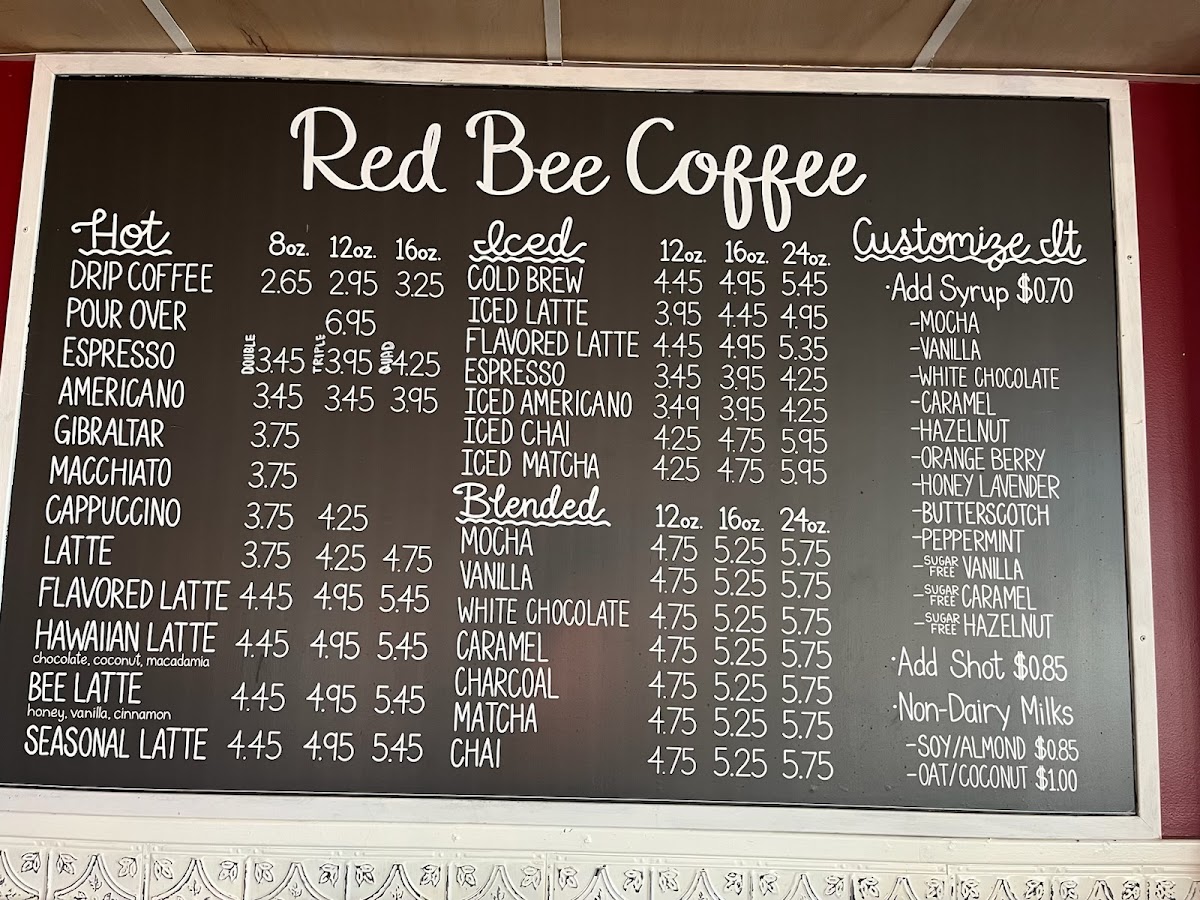 Red Bee Coffee
Hot 8oz. 12oz. 16oz.
DRIP COFFEE 2.65 2.95 3.25
POUR OVER 6.95
ESPRESSO DOUBLE 3.45 TRIPLE 3.95 QUAD 4.25
AMERICANO 3.45 3.45 3.95
GIBRALTAR 3.75
MACCHIATO 3.75
CAPPUCCINO 3.75 4.25
LATTE 3.75 4.25 4.75
FLAVORED LATTE 4.45 4.95 5.45
HAWAIIAN LATTE 4.45 4.95 5.45
chocolate, coconut, macadamia
BEE LATTE 4.45 4.95 5.45
honey, vanilla, cinnamon
SEASONAL LATTE 4.45 4.95 5.45
Iced 12oz. 16oz. 24oz.
COLD BREW 4.45 4.95 5.45
ICED LATTE 3.95 4.45 4.95
FLAVORED LATTE 4.45 4.95 5.35
ESPRESSO 3.45 3.95 4.25
ICED AMERICANO 3.49 3.95 4.25
ICED CHAI 4.25 4.75 5.95
ICED MATCHA 4.25 4.75 5.95
Blended 12oz. 16oz. 24oz.
MOCHA 4.75 5.25 5.75
VANILLA 4.75 5.25 5.75
WHITE CHOCOLATE 4.75 5.25 5.75
CARAMEL 4.75 5.25 5.75
CHARCOAL 4.75 5.25 5.75
MATCHA 4.75 5.25 5.75
CHAI 4.75 5.25 5.75
Customize It
·Add Syrup $0.70
-MOCHA
-VANILLA
-WHITE CHOCOLATE
-CARAMEL
-HAZELNUT
-ORANGE BERRY
-HONEY LAVENDER
-BUTTERSCOTCH
-PEPPERMINT
-SUGAR FREE VANILLA
-SUGAR FREE CARAMEL
-SUGAR FREE HAZELNUT
·Add Shot $0.85
·Non-Dairy Milks
-SOY/ALMOND $0.85
-OAT/COCONUT $1.00